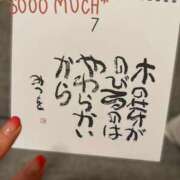 SOOO MUCH*
7
木の芽が
のびるのは
やわらかい
から
みつを